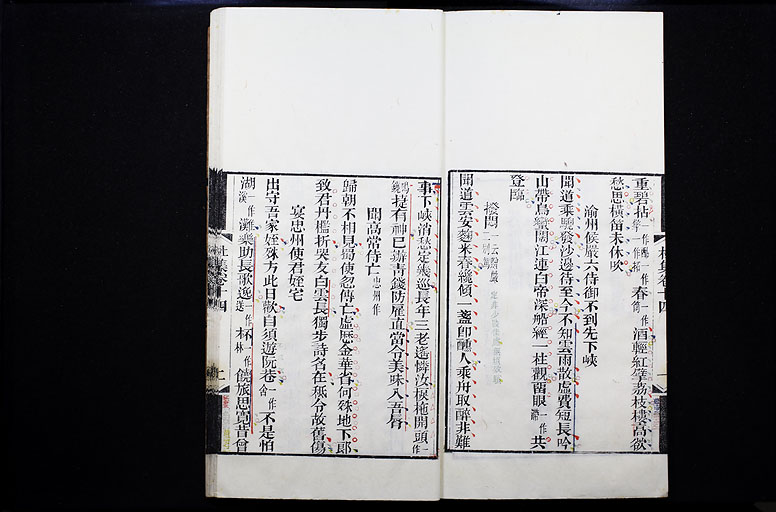 重碧拈一作酤一作拓一作擎春一作筒酒輕紅擘荔枝樓高欲
愁思橫笛未休吹
渝州候嚴六侍御不到先下峽
聞道乘驄發沙邊待至今不知雲雨散虛費短長吟
山帶烏蠻闊江連白帝深船經一柱觀留眼一作滯共
登臨
撥悶一云贈嚴二別駕
聞道雲安麴米春纔傾一盞即醺人乘舟取醉非難
事下峽消愁定幾巡長年三老遙憐汝棙柁開頭一作
鳴鐃捷有神已辦青錢防雇直當令美味入吾脣
聞高常侍亡忠州作
歸朝不相見蜀使忽傳亡虛歷金華省何殊地下郎
致君丹檻折哭友白雲長獨步詩名在秪令故舊傷
宴忠州使君姪宅
出守吾家姪殊方此日歡自須遊阮巷一作舍不是怕
湖一作溪灘樂助長歌逸一作送杯一作林饒旅思寬昔曾
杜集卷十四